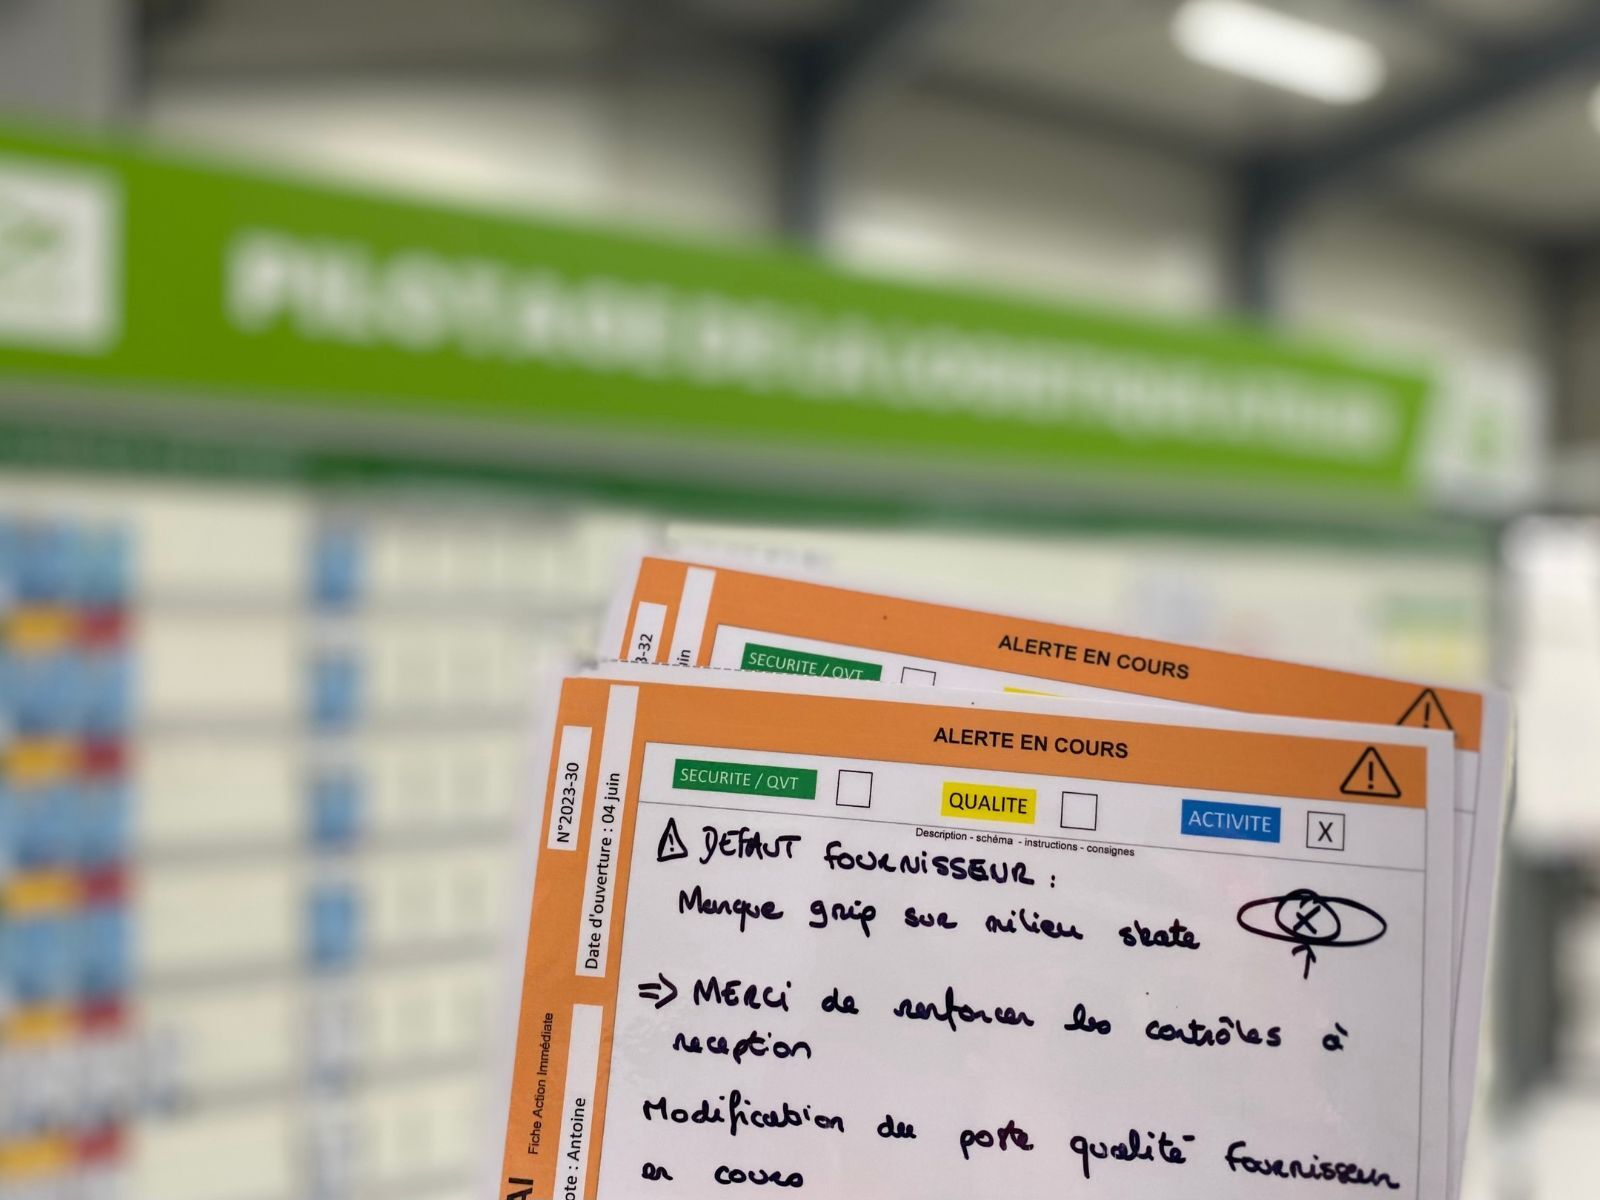 PILOTAGE DE LA LOGISTIQUE
3-32
uin
ALERTE EN COURS
SECURITE / QVT
ALERTE EN COURS
N°2023-30
Date d'ouverture : 04 juin
SECURITE / QVT
QUALITE
ACTIVITE
X
Description - schéma - instructions - consignes
DEFAUT FOURNISSEUR :
Manque grip sur milieu skate
X
=> MERCI de renforcer les contrôles à
reception
Modification du poste qualité fournisseur
en cours
Fiche Action Immédiate
ote : Antoine
AI